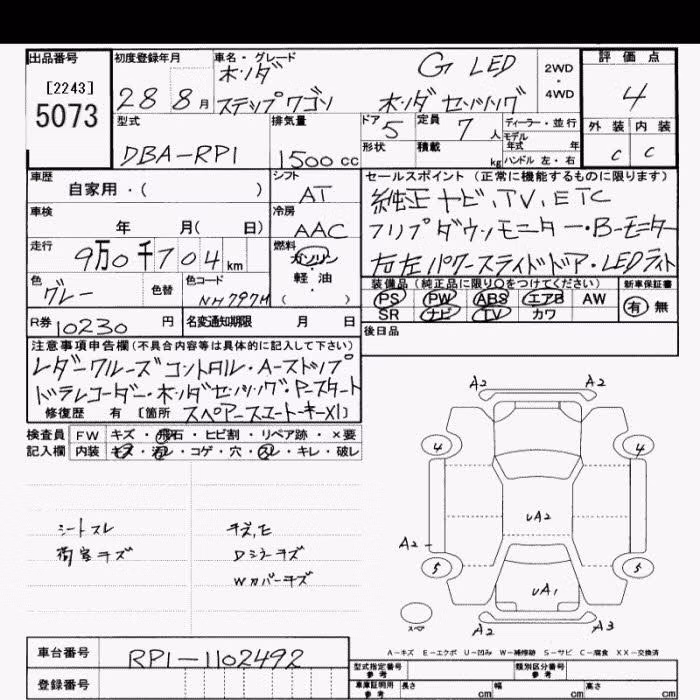 出品番号 初度登録年月 車名・グレード 評価点
[2243]
5073
28 8月 ホンダ G LED 2WD・4WD 4
ステップワゴン ホンダセンシング
型式 排気量 ドア 5 定員 7人 ディーラー・並行 外装 内装
モデル年式 年
DBA-RP1 1500cc 形状 積載 kg ハンドル 左・右 C C
車歴 シフト セールスポイント (正常に機能するものに限ります)
自家用・( ) AT 純正ナビ,TV,ETC
車検 冷房 フリップダウンモニター・Bーモニター
年 月( 日) AAC
走行 燃料 右左パワースライドドア・LEDライト
9万0千704km ガソリン・軽油
色 色替 色コード ( ) 装備品 (純正品に限り○をつけてください) 新車保証書
グレー NH797M PS PW ABS エアB AW 有・無
SR ナビ TV カワ
R券 10230円 名変通知期限 月 日 後日品
注意事項申告欄 (不具合内容等は具体的に記入して下さい)
レーダークルーズコントロール・Aーストップ
ドラレコーダー・ホンダセンシング・Pースタート
修復歴 有 [箇所 スペアースマートーキーX1]
検査員 FW キズ・飛石・ヒビ割・リペア跡・×要
記入欄 内装 キズ・汚レ・コゲ・穴・スレ・キレ・破レ
シートスレ
荷室キズ Dミラーキズ
Wカバーキズ
A2 A2
4 4
UA2
A2
5 5
UA1
スペア
A2 A3
A-キズ E-エクボ U-凹み W-補修跡 S-サビ C-腐食 XX-交換済
車台番号 RP1-1102492 型式指定番号 参考 類別区分番号 参考
登録番号 車庫証明用 参考 長さ cm 幅 cm 高さ cm